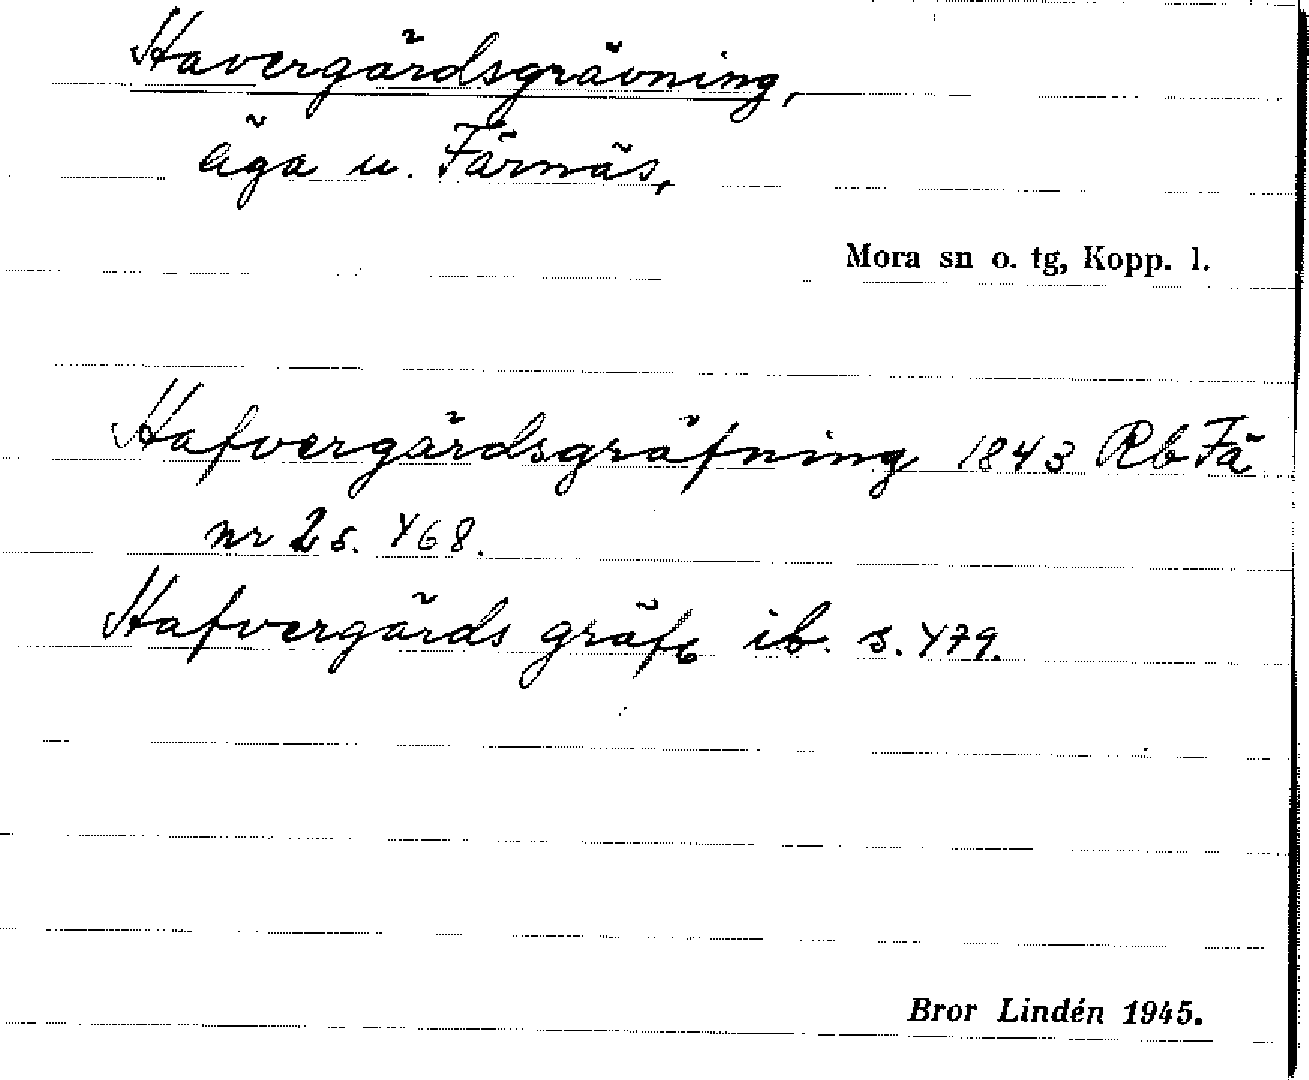 Havergärdsgrävning,
äga u. Färnäs,
Mora sn o. tg, Kopp. l.
Hafvergärdsgräfning 1843 Rb Fä
nr 2 s. 468.
Hafvergärds gräfg ib. s. 479.
Bror Lindén 1945.